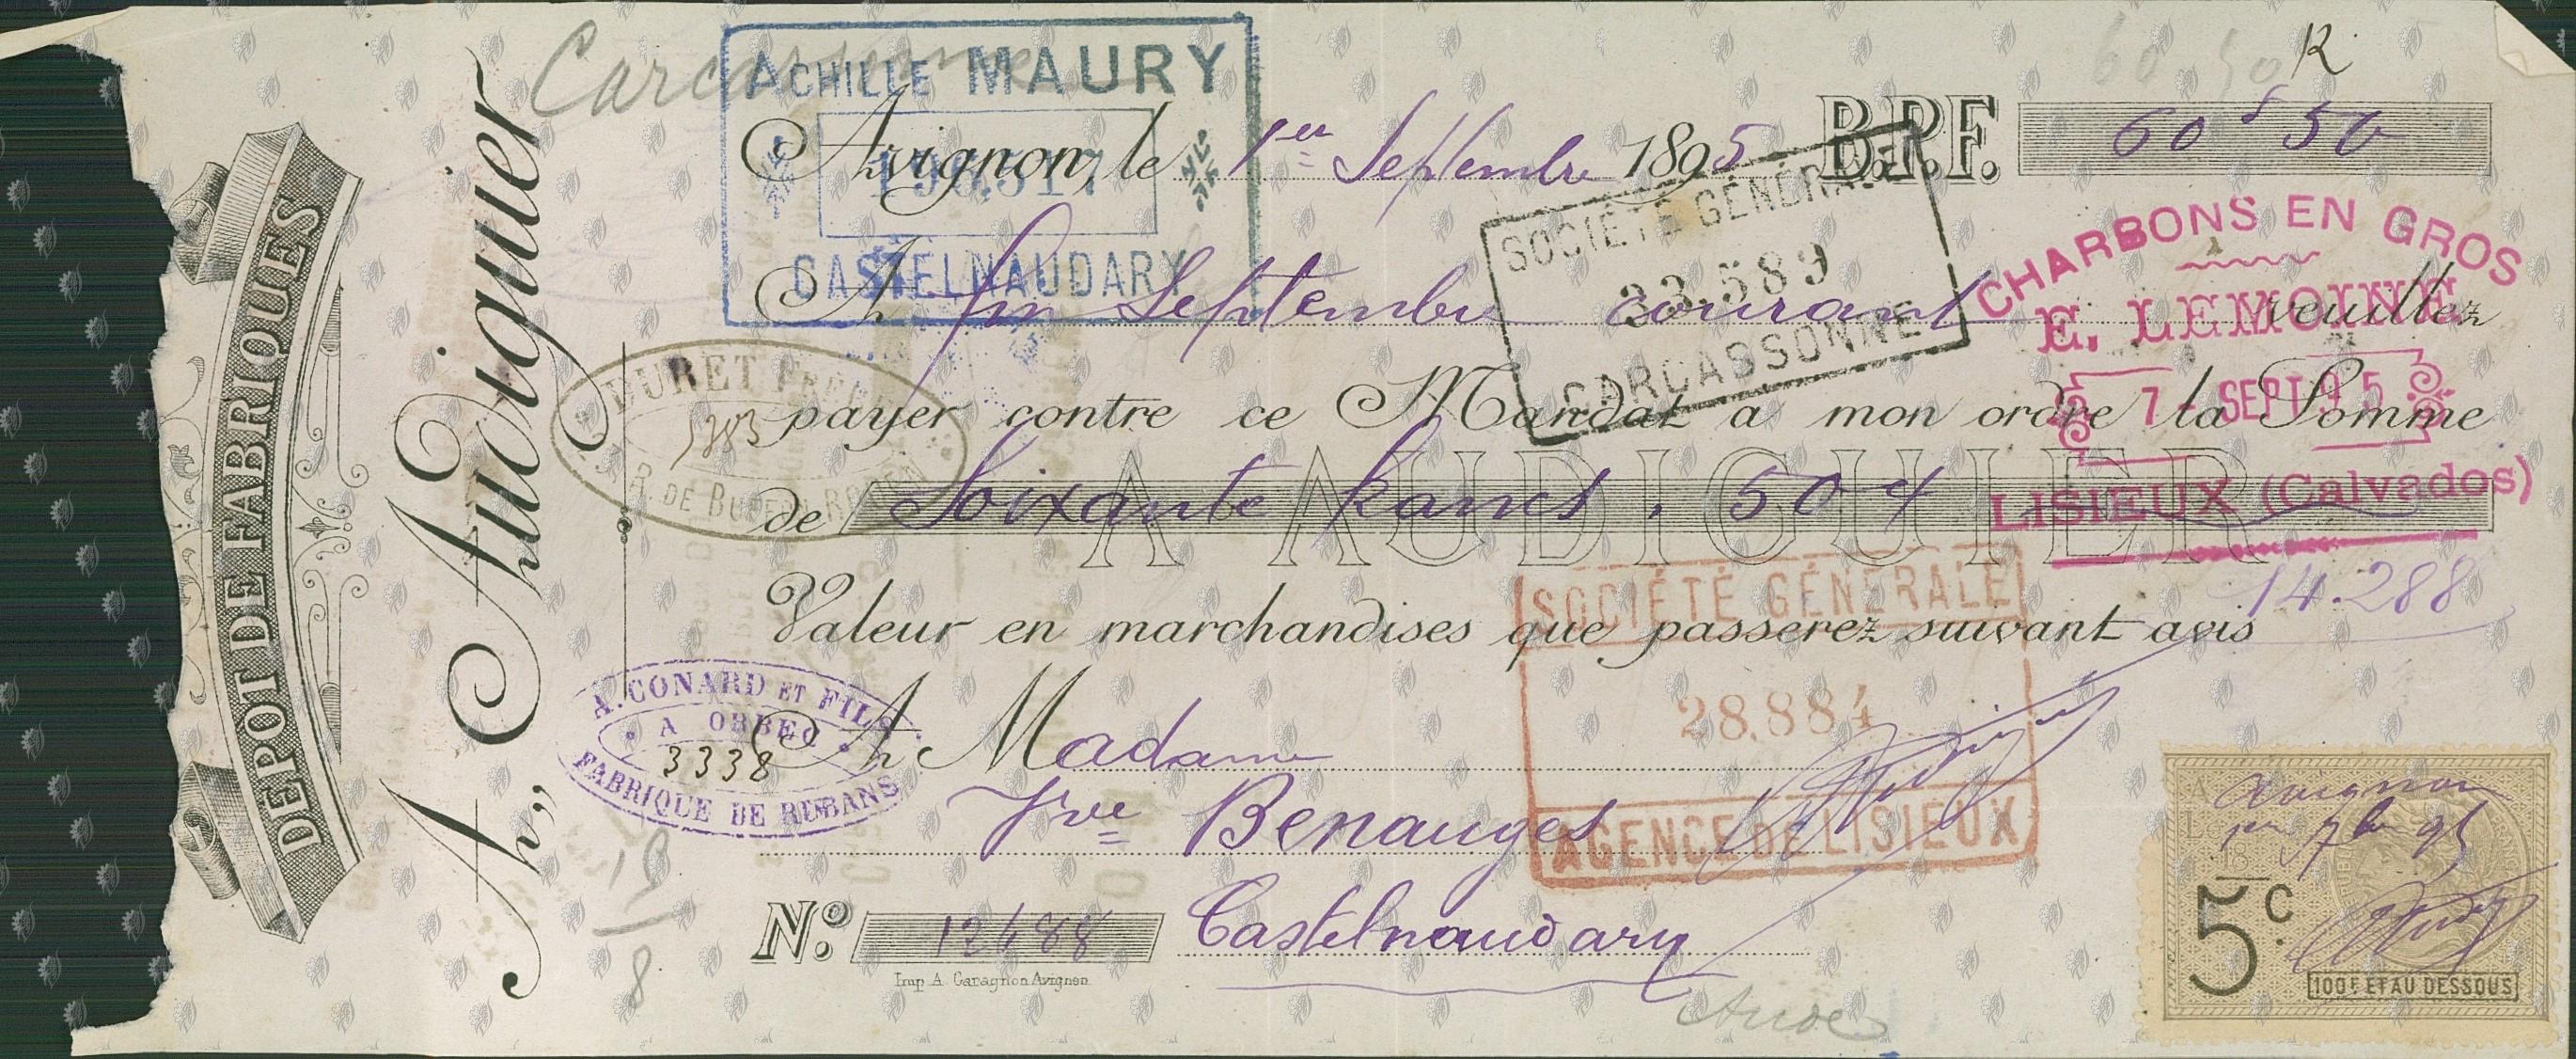 DÉPÔT DE FABRIQUES
A. Audiguier
Carcassonne
ACHILLE MAURY
CASTELNAUDARY
60 50
R
Avignon, le 1er Septembre 1895 B.P.F. 60f 50
SOCIÉTÉ GÉNÉRALE
33.589
CARCASSONNE
CHARBONS EN GROS
E. LEMOINE
7 SEPT 95
LISIEUX (Calvados)
A fin Septembre courant veuillez
DURET FRÈRES
payer contre ce Mandat a mon ordre la Somme
A AUDIGUIER
de Soixante francs. 50 c
14.288
Valeur en marchandises que passerez suivant avis
SOCIÉTÉ GÉNÉRALE
28.884
AGENCE DE LISIEUX
A. CONARD ET FILS
A ORBEC
3338
FABRIQUE DE RUBANS
A Madame
Vve Benauges
19
8
No. 12488 Castelnaudary
Imp. A. Garagnon Avignon
Aude
Avignon
1er 7bre 95
5c.
100F. ET AU DESSOUS